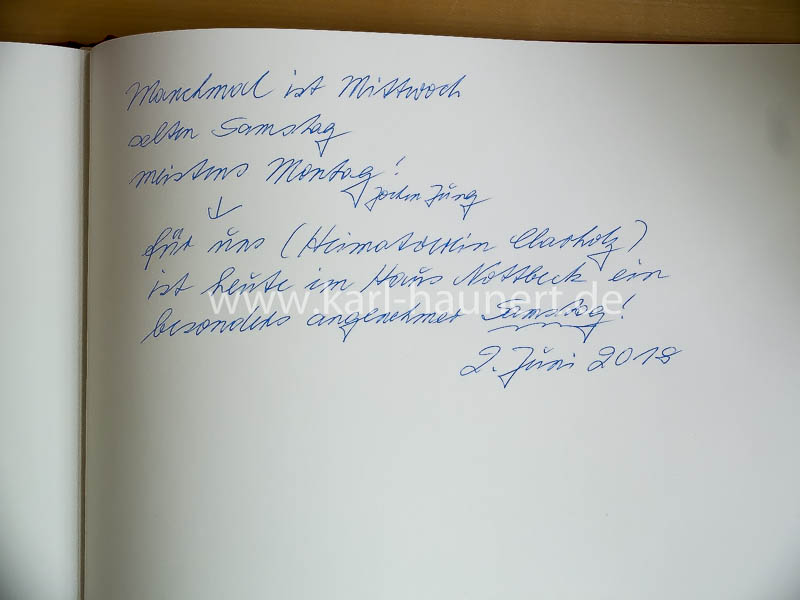 Manchmal ist Mittwoch
selten Samstag
meistens Montag!
Jochen Jung
für uns (Heimatverein Clarholz)
ist heute im Haus Nottbeck ein
www.karl-haunert.de
besonders angenehmer Samstag!
2. Juni 2018